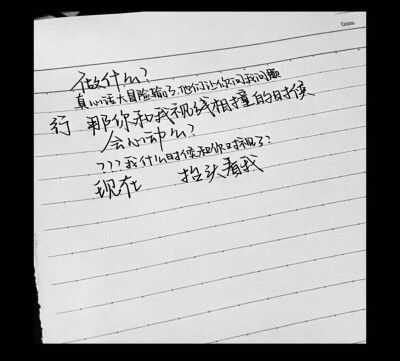 做什么?
真心话大冒险输了.他们让你问我问题
行 那你和我视线相撞的时候
会心动么?
???我什么时候和你对视了?
现在 抬头看我